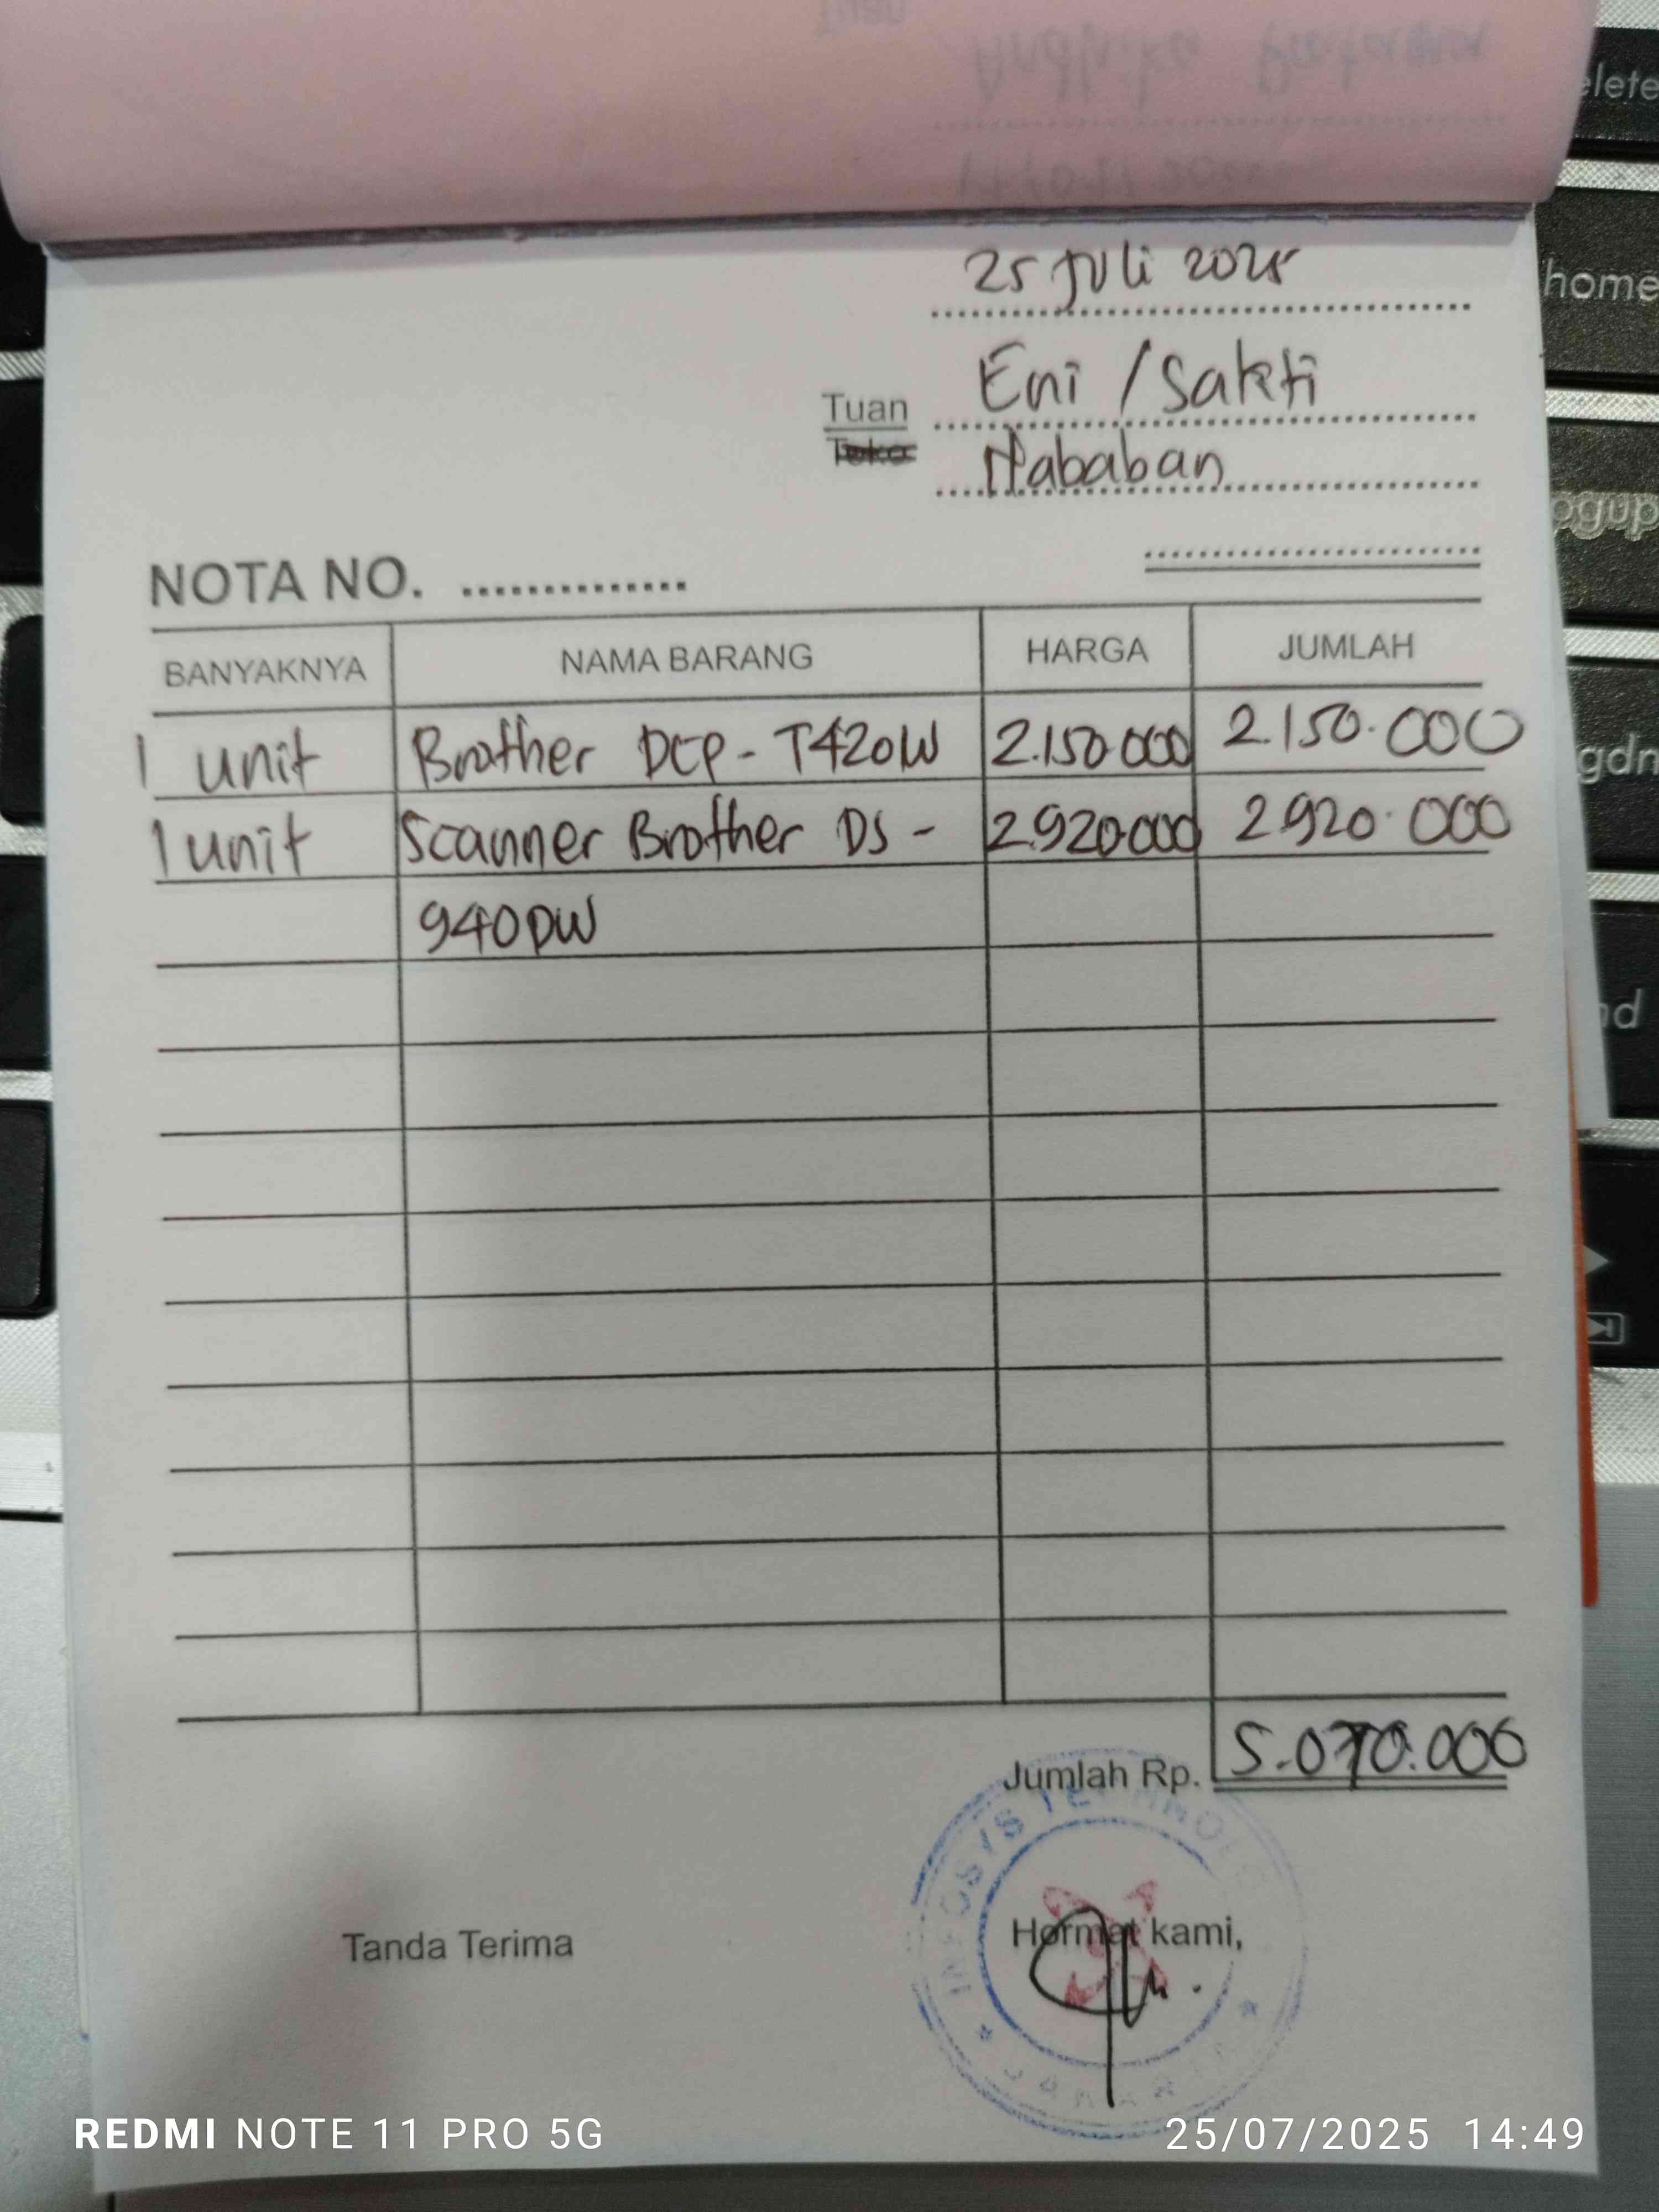 Tuan
Andhika Pratama
25 Juli 2025
Tuan Eni / Sakti
Toko Nababan
NOTA NO. ..............
BANYAKNYA NAMA BARANG HARGA JUMLAH
1 unit Brother DCP - T420W 2.150.000 2.150.000
1 unit Scanner Brother DS - 2.920.000 2.920.000
940DW
Jumlah Rp. 5.070.000
INFOSYS TECHNOLO
Tanda Terima Hormat kami,
JAKARTA
REDMI NOTE 11 PRO 5G 25/07/2025 14:49
elete
home
pgup
pgdn
nd